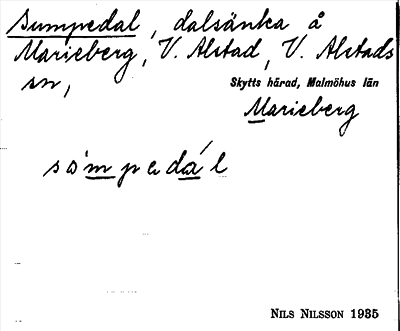 Sumpedal, dalsänka å
Marieberg, V. Alstad, V. Alstads
sn,
Skytts härad, Malmöhus län
Marieberg
sòmpədál
NILS NILSSON 1935